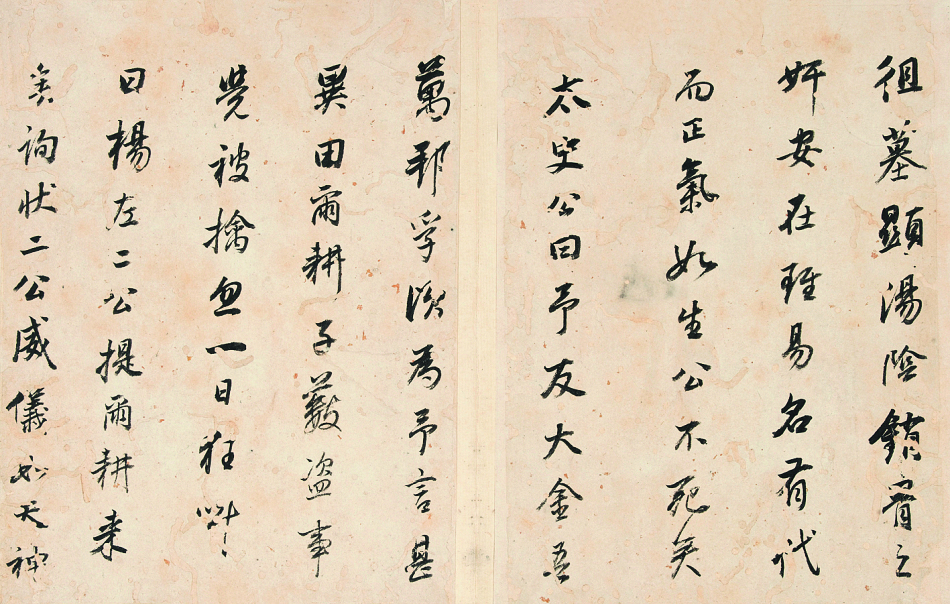 徂墓顯湯陰錯肎之
奸安在雖易名有代
而正氣如生公不死矣
太史公曰予友大金吾
萬邦孚濱為予言甚
異田爾耕子藪盜事
覺被擒忽一日狂叫
曰楊左二公提爾耕来
矣詢狀二公威儀如天神